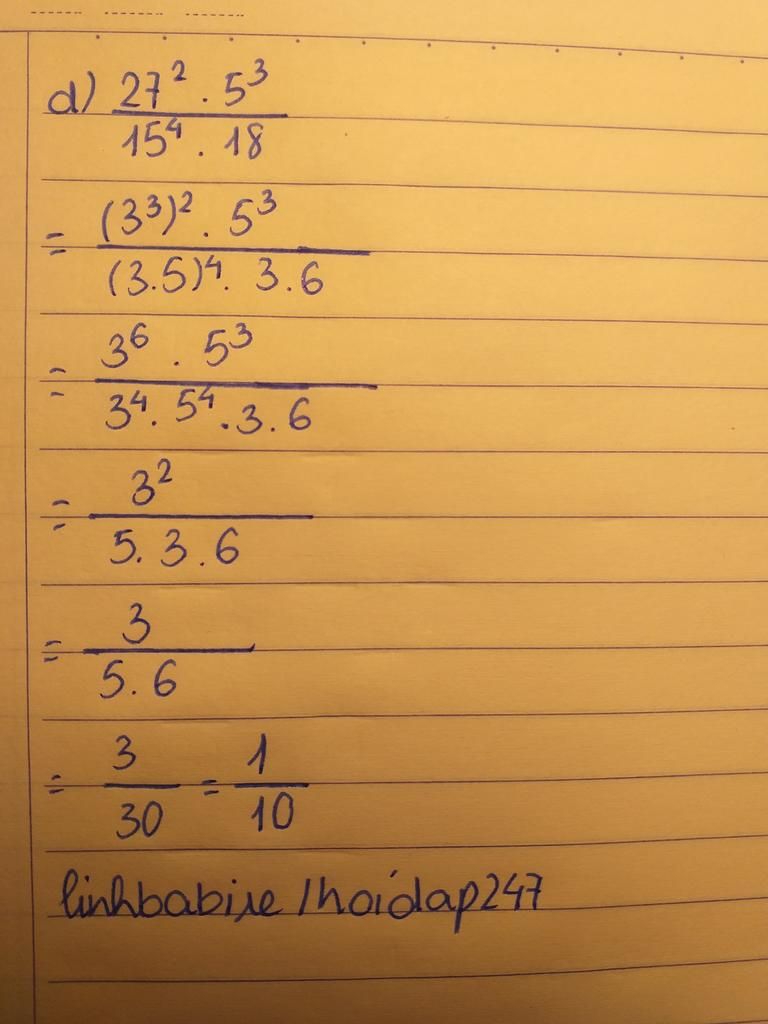 d) 27² . 5³ / 15⁴ . 18
= (3³)² . 5³ / (3.5)⁴. 3.6
= 3⁶ . 5³ / 3⁴. 5⁴ .3.6
= 3² / 5.3.6
= 3 / 5.6
= 3 / 30 = 1 / 10
linhbabie /hoidap247